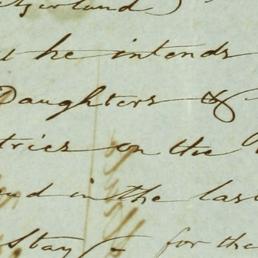 zerland)
he intends
Daughters &
tries on the
nd in the las
Stay - for the